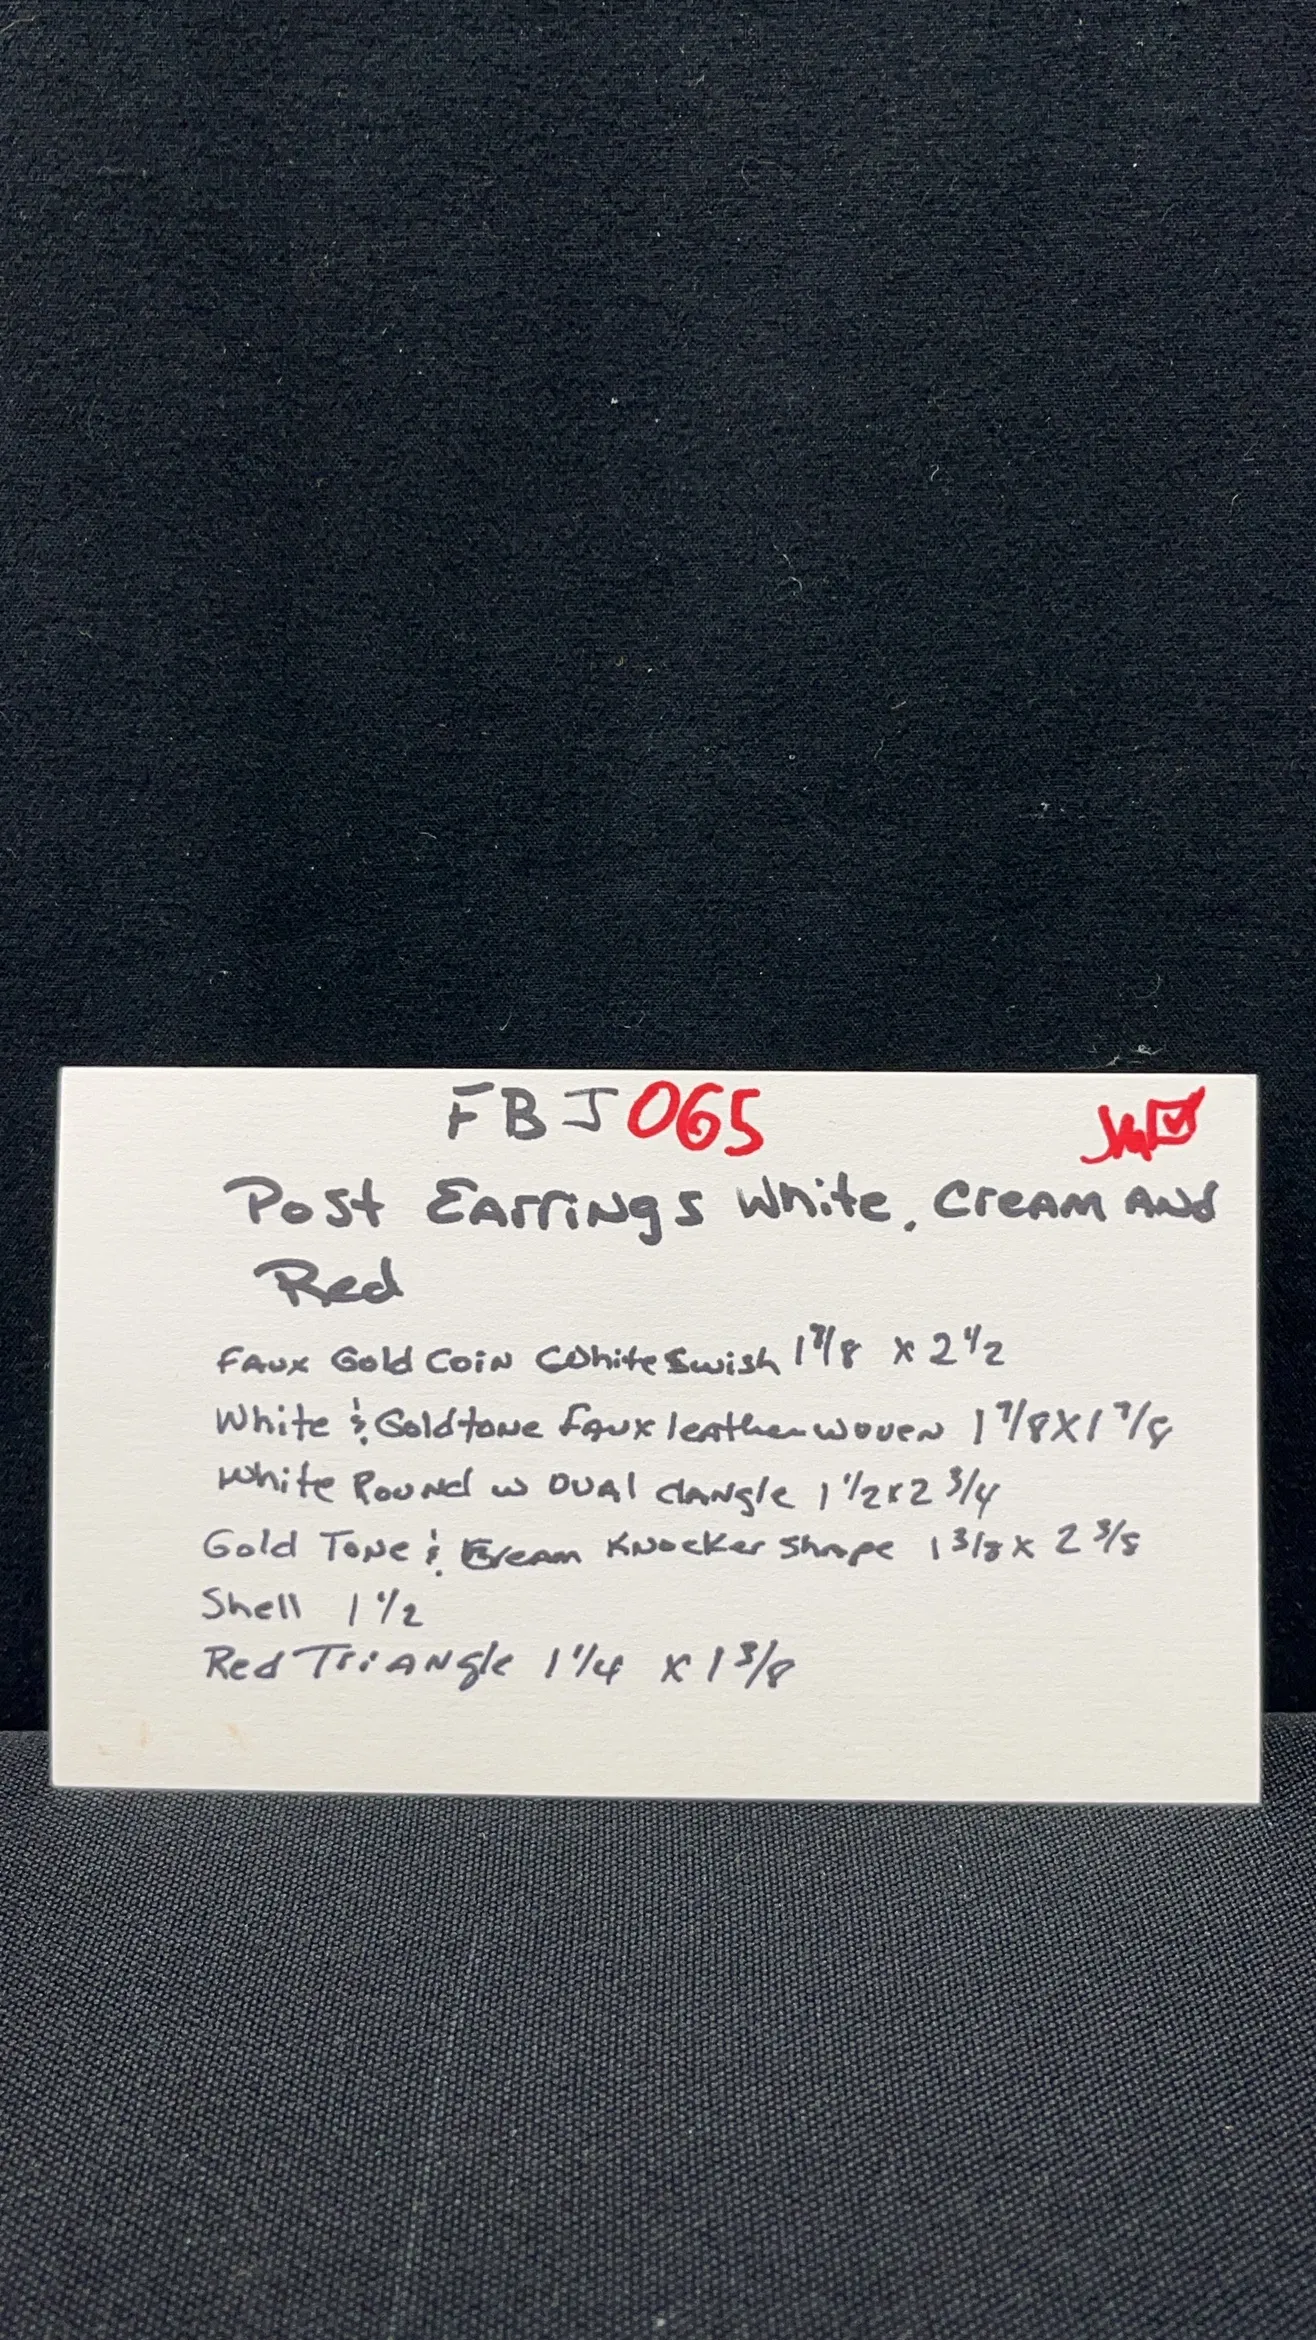 FBJ065
Post Earrings White, Cream And
Red
Faux Gold Coin White Swish 1 7/8 x 2 1/2
White & Goldtone faux leather woven 1 7/8 X 1 7/8
White Round w Dual dangle 1 1/2 x 2 3/4
Gold Tone & Cream Knocker shape 1 3/8 x 2 3/8
Shell 1 1/2
Red Triangle 1 1/4 x 1 3/8